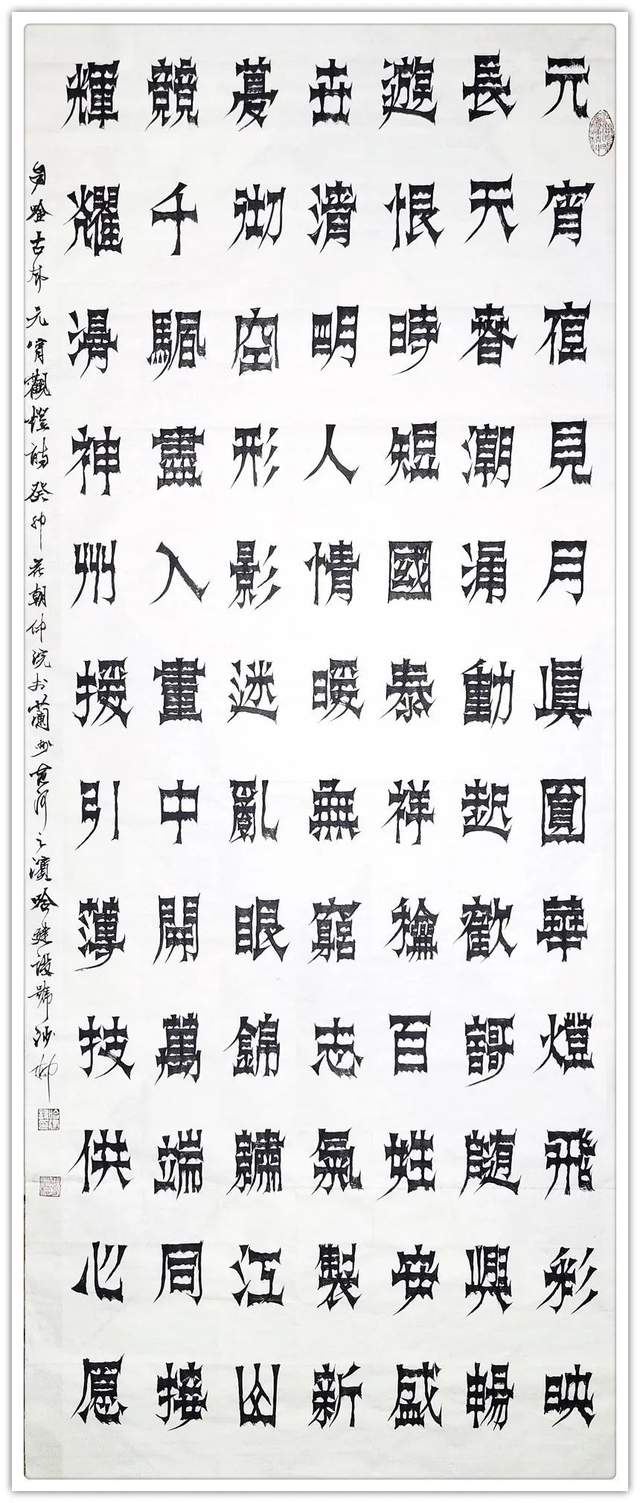 元宵值見月真圓華燈飛彩映
長天春潮涌動起歡謌隨興暢
遊恨時短國泰祥百姓安盛
世清明人情暖無窮志氣製新
夢空形影迷亂眼錦繡江山
競千盡入畫中開萬端同接
輝耀神州援引薄技供心愿
自吟古体元宵觀燈詩癸卯花朝仲浣於蘭州黄河之濱哈建設號沙柳